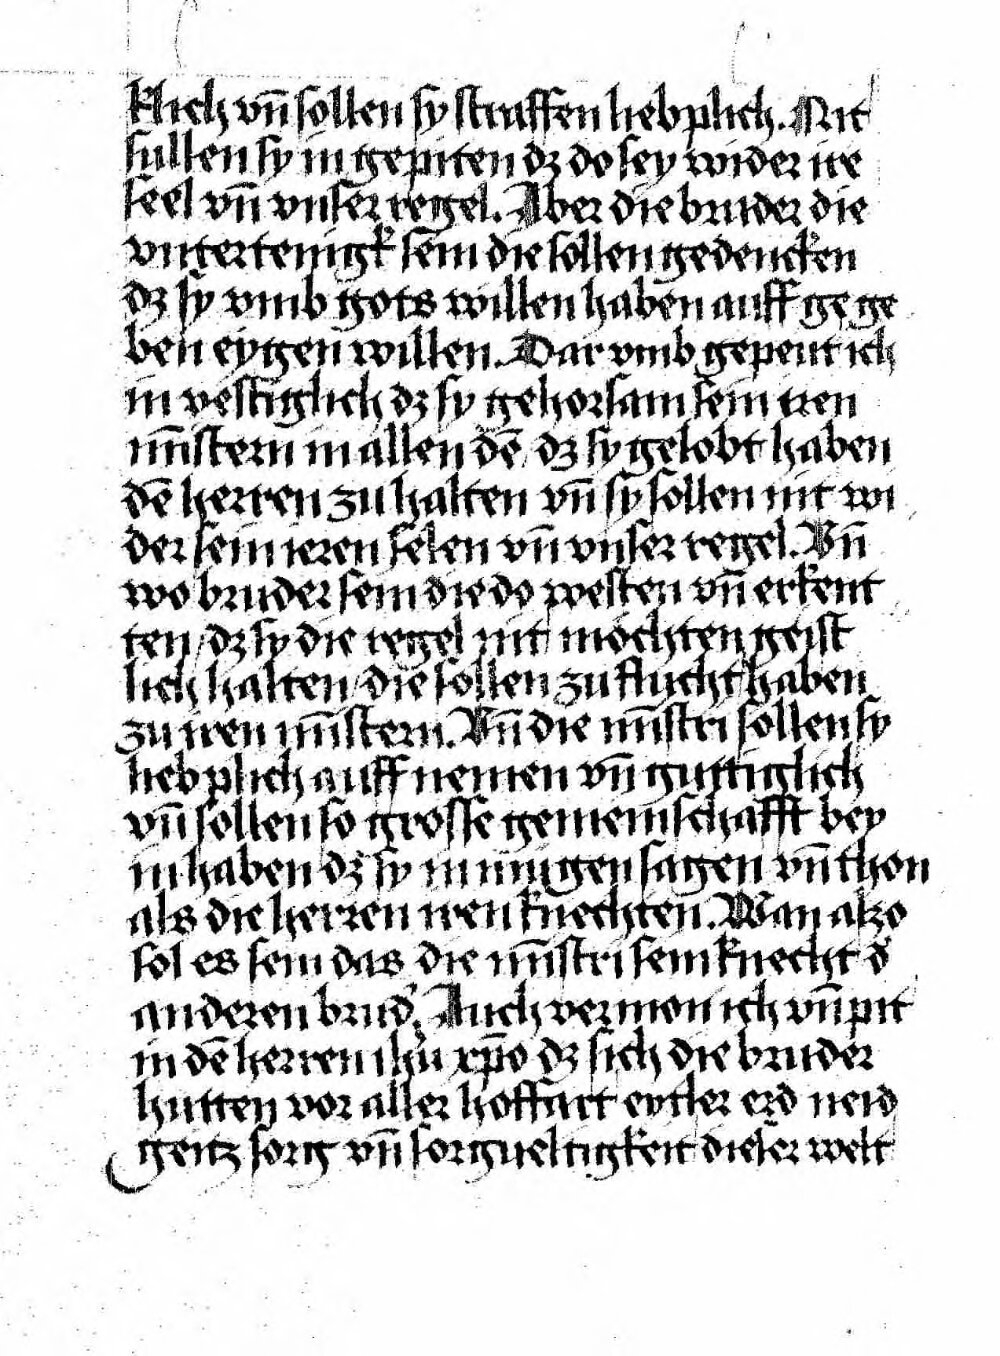 klich vn̄ sollen sy straffen lieb plich. Nit
sullen sy in gepiten dz do sey wider ire
seel vn̄ vnser regel. Aber die bruder die
vntertenigk sein die sollen gedencken
dz sy vmb gots willen haben auff ge ge
ben eygen willen. Dar vmb gepeut ich
in vestiglich dz sy gehorsam sein iren
mīstern in allen dē dz sy gelobt haben
dē herren zu halten vn̄ sy sollen nit wi
der sein ieren selen vn̄ vnser regel. Vn̄
wo bruder sein die do westen vn̄ erkent
ten / dz sy die regel nit mochten geist
lich halten / die sollen zu flucht haben
zu iren mīstern. Vn̄ die mīstri sollen sy
lieb plich auff nemen vn̄ guttiglich
vn̄ sollen so grosse gemeinschafft bey
in haben dz sy in mugen sagen vn̄ thon
als die herren iren knechten. Wan alzo
sol es sein das die mīstri sein knecht d̄
anderen brud̄. Auch vermon ich vn̄ pit
in dē herren ihū xp̄o dz sich die bruder
hutten vor aller hoffart eytler erd neid
geitz sorg vn̄ sorgueltigkeit dieser welt